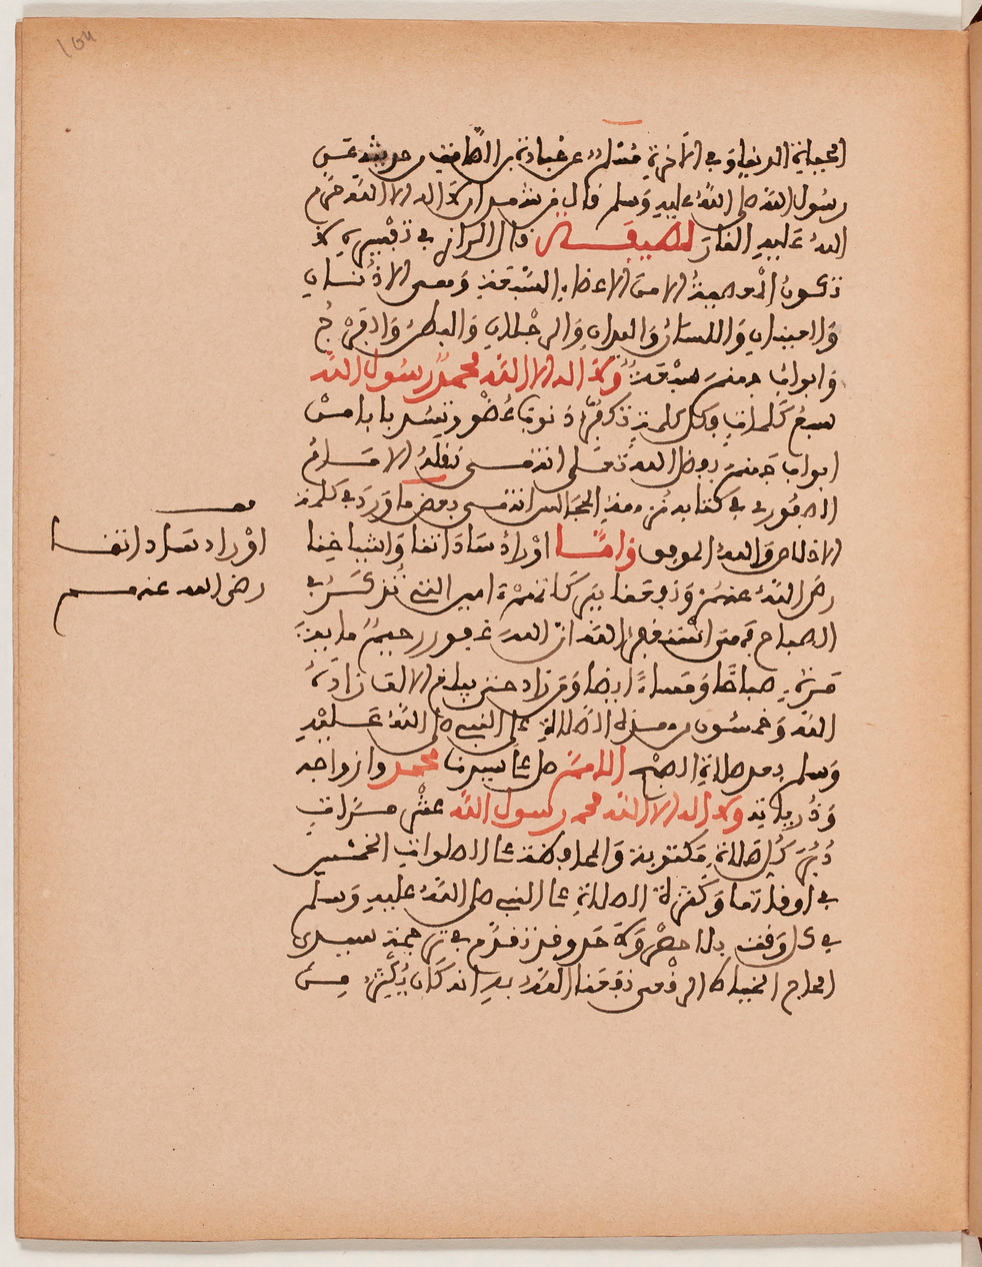 الحياة الدنيا وفي الآخرة مسلم عن عبادة بن الصامت حديثه عن
رسول الله صلى الله عليه وسلم قال من شهد أن لا إله إلا الله حرم
الله عليه النار لطيفة قال الرازي في تفسيره لا
تكون المعصية إلا من الأعضاء السبعة وهي الأذنان
والعينان واللسان واليدان والرجلان والبطن والفرج
وأبواب جهنم سبعة ولا إله إلا الله محمد رسول الله
سبع كلمات وكل كلمة تكفر ذنوب عضو وتسد بابا من
أبواب جهنم بفضل الله تعلى انتهى نقله الإمام
الصفوري في كتابه نزهة المجالس انتهى بعض ما ورد في كلمة
الإخلاص والله الموفق وأما أوراد ساداتنا وأشياخنا
رضي الله عنهم ونفعنا ببركاتهم آمين التي تذكر في
الصباح فهي أستغفر الله إن الله غفور رحيم مائة
مرة صباحا ومساء أيضا ومن زاد حتى يبلغ الألف زاده
الله وخمسون من هذه الصلاة على النبي صلى الله عليه
وسلم بعد صلاة الصبح اللهم صل على سيدنا محمد وأزواجه
وذرياته ولا إله إلا الله محمد رسول الله عشر مرات
دبر كل صلاة مكتوبة والمحافظة على الصلوات الخمس
في أوقاتها وكثرة الصلاة على النبي صلى الله عليه وسلم
في كل وقت بلا حصر ولا حد وقد تقدم في ترجمة سيدي
الحاج الخياط الرفعي نفعنا الله به أنه كان يكثر من
هـ
أوراد ساداتنا
رضي الله عنهم